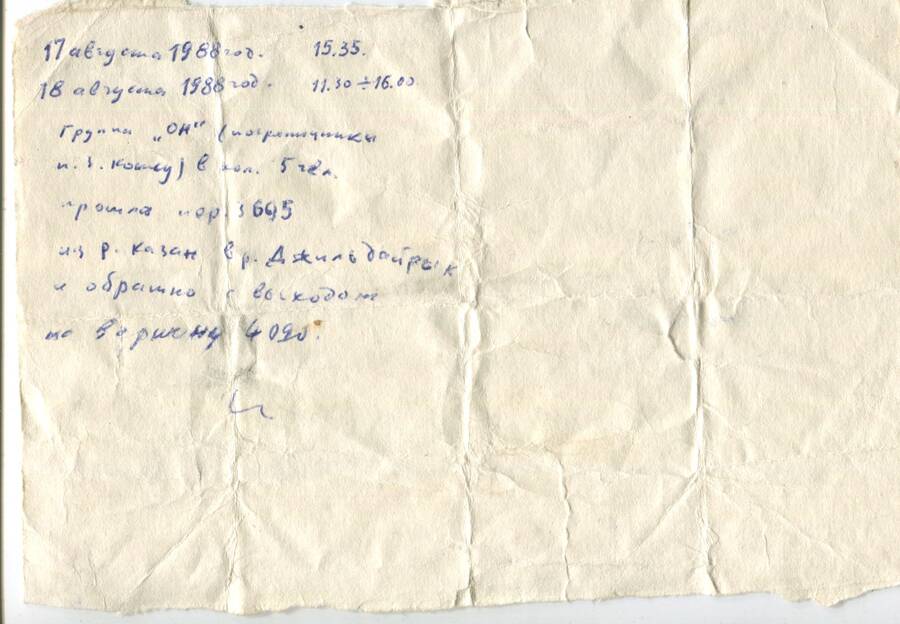 17 августа 1988 год. 15.35.
18 августа 1988 год. 11.30 ÷ 16.00
группа „ОН" (пограничники
п. з. кошеу) в кол. 5 чел.
прошла пер. 3695
из р. Казан в р. Джильдайрык
и обратно с выходом
на вершину 4090.